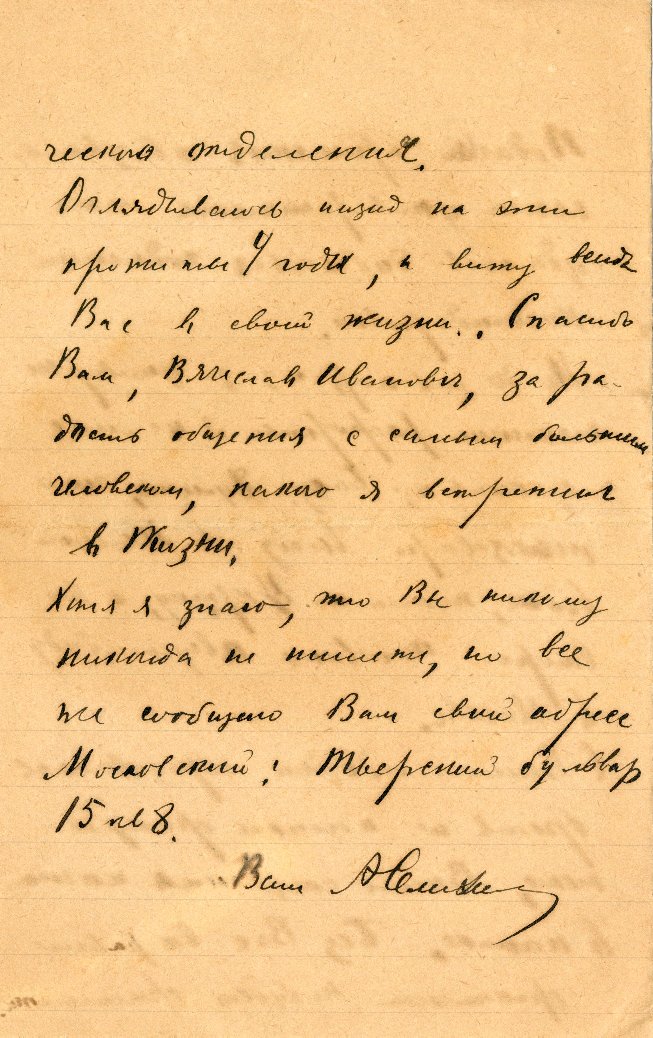 ческого отделения.
Оглядываюсь назад на эти
прожитые 4 года, и вижу везде
Вас в своей жизни. Спасибо
Вам, Вячеслав Иванович, за ра-
дость общения с самым большим
человеком, какого я встретил
в жизни.
Хотя я знаю, что Вы никому
никогда не пишете, но все
же сообщаю Вам свой адрес
Московский: Тверской бульвар
15 кв 8.
Ваш